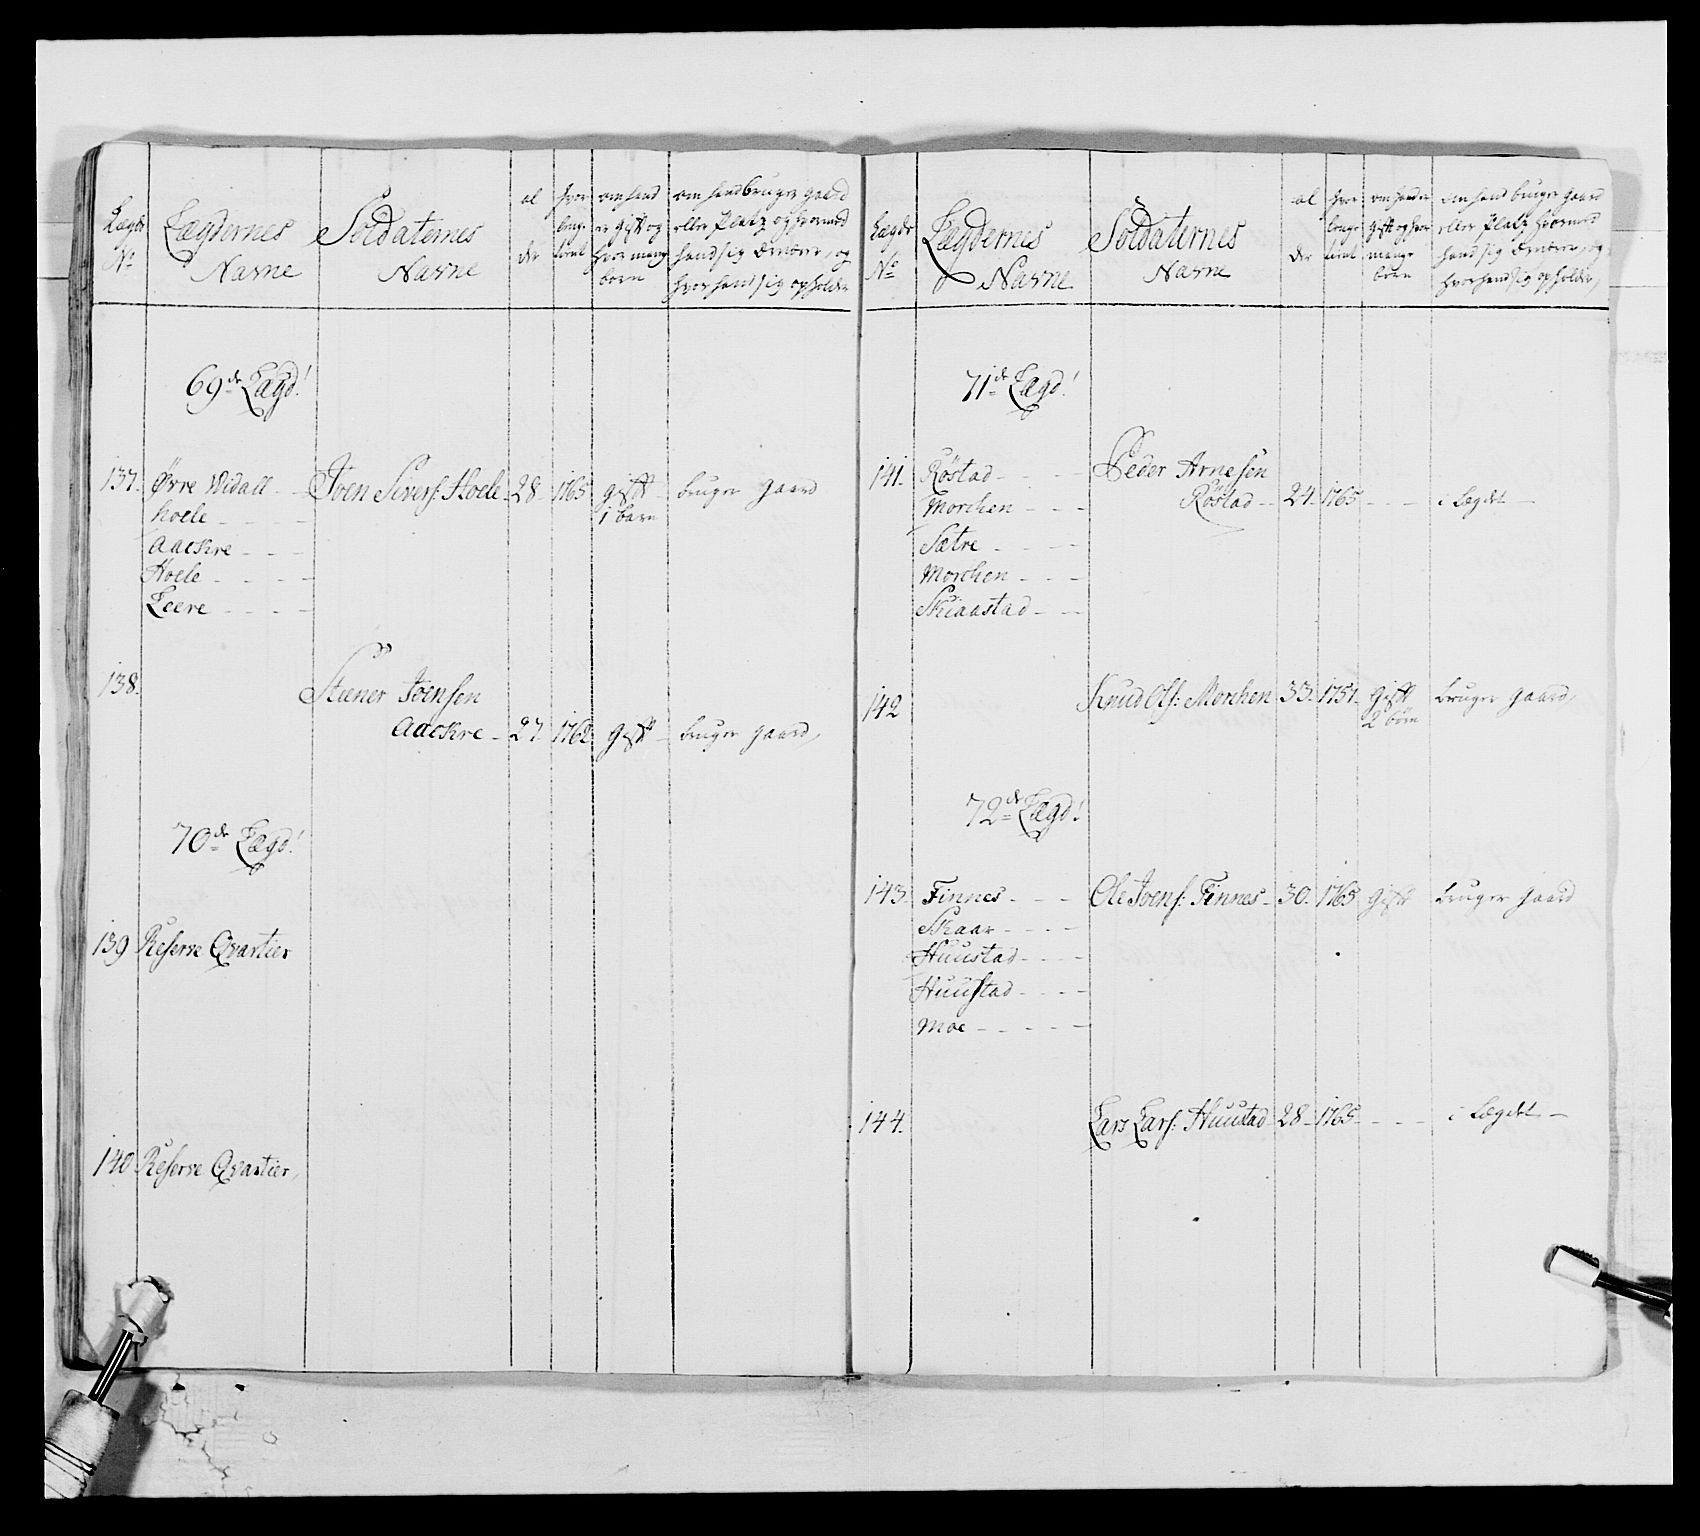 Lægds
No
Lægdernes
Navne
Soldaternes
Navne
al
der
hvor
længe
tient
om hand
er Gift og
hvor mange
børn
om hand bruger gaard
eller Platz og hvormed
hand sig ernærer, og
hvor hand sig opholder
69de Lægd!
137. Øvre Widall - - Joen Sivers: Hoele - 28 - 1765 gift - bruger gaard
hoele - - - 1 barn
Aackre - - -
Hoele - - - -
Leere - - - -
138. Steener Joensen
Aackre - 27 - 1762 gift - bruger gaard,
70de Lægd!
139 Reserve Qvartier
140 Reserve Qvartier,
Lægds
No
Lægdernes
Navne
Soldaternes
Navne
al
der
hvor
længe
tient
om hand er
Gift og hvor
mange
børn
om hand bruger gaard
eller Platz hvormed
hand sig ernærer, og
hvor hand sig opholder,
71de Lægd!
141. Röstad - - - Peder Arnesen
Morchen - - - Röstad - - 24 - 1765 - - - i Lægdet -
Sætre - - - -
Morchen - - -
Skiaastad - - -
142 Knud Ols: Morchen 33 - 1757 - Gift bruger gaard,
2 börn
72de Lægd!
143. Finnes - - - Ole Joens: Finnes - 30 - 1765 gift bruger gaard
Skaar - - - -
Huustad - - - -
Huustad - - - -
Moe - - - - -
144. Lars Lars: Huustad 28 - 1765 - - - - i Lægdet -